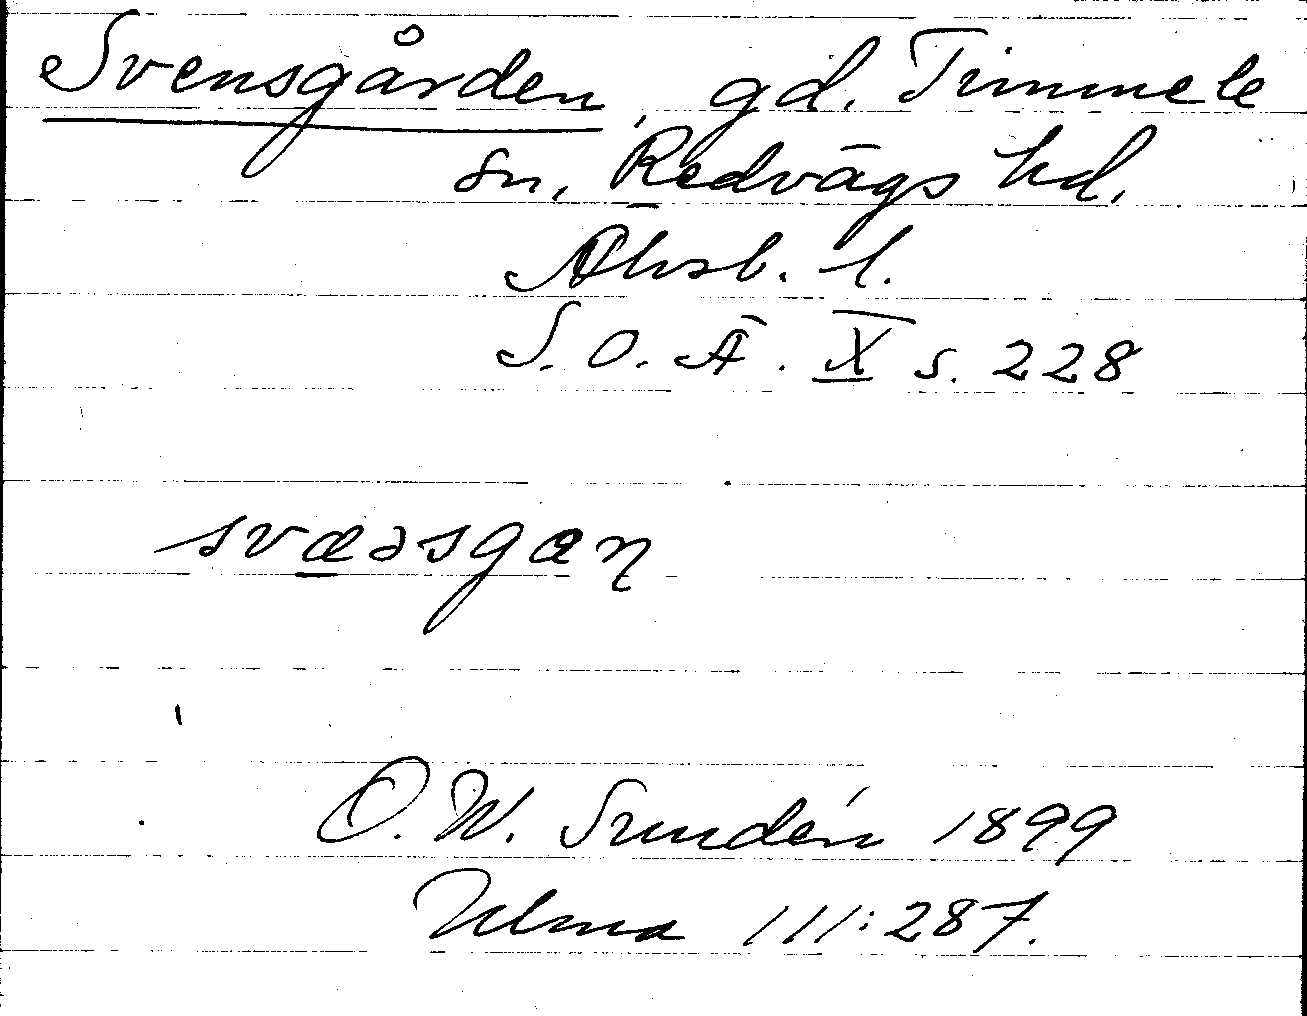 Svensgården, gd. Timmele
sn, Redvägs hd.
Älvsb. l.
S.O.Ä. X s. 228
svæəsgaɳ
O.W. Sundén 1899
Ulma 111:287.